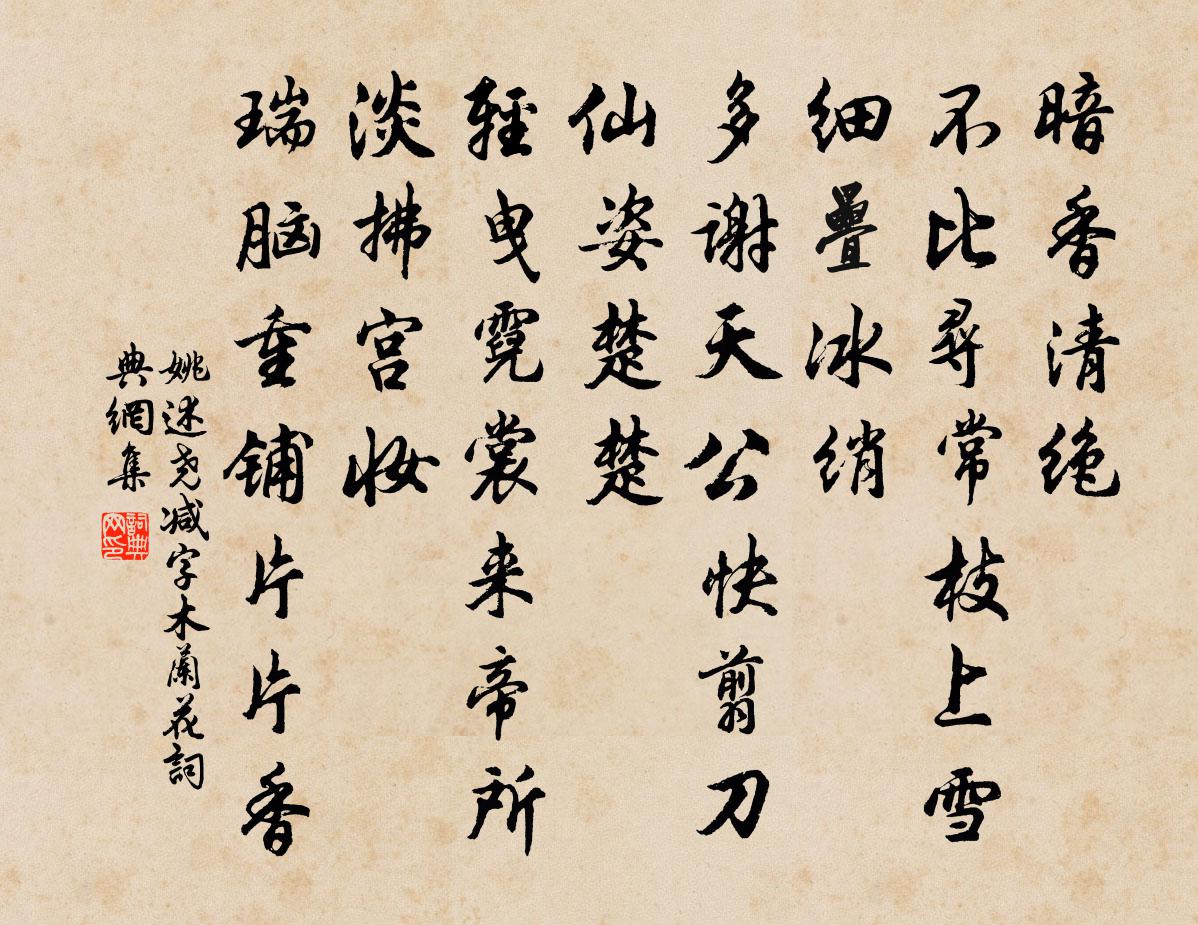 暗香清绝
不比尋常枝上雪
细疊冰绡
多谢天公快剪刀
仙姿楚楚
轻曳霓裳来帝所
淡拂宫妆
瑞脑重铺片片香
姚述尧减字木蘭花詞
典網集
詞典网印